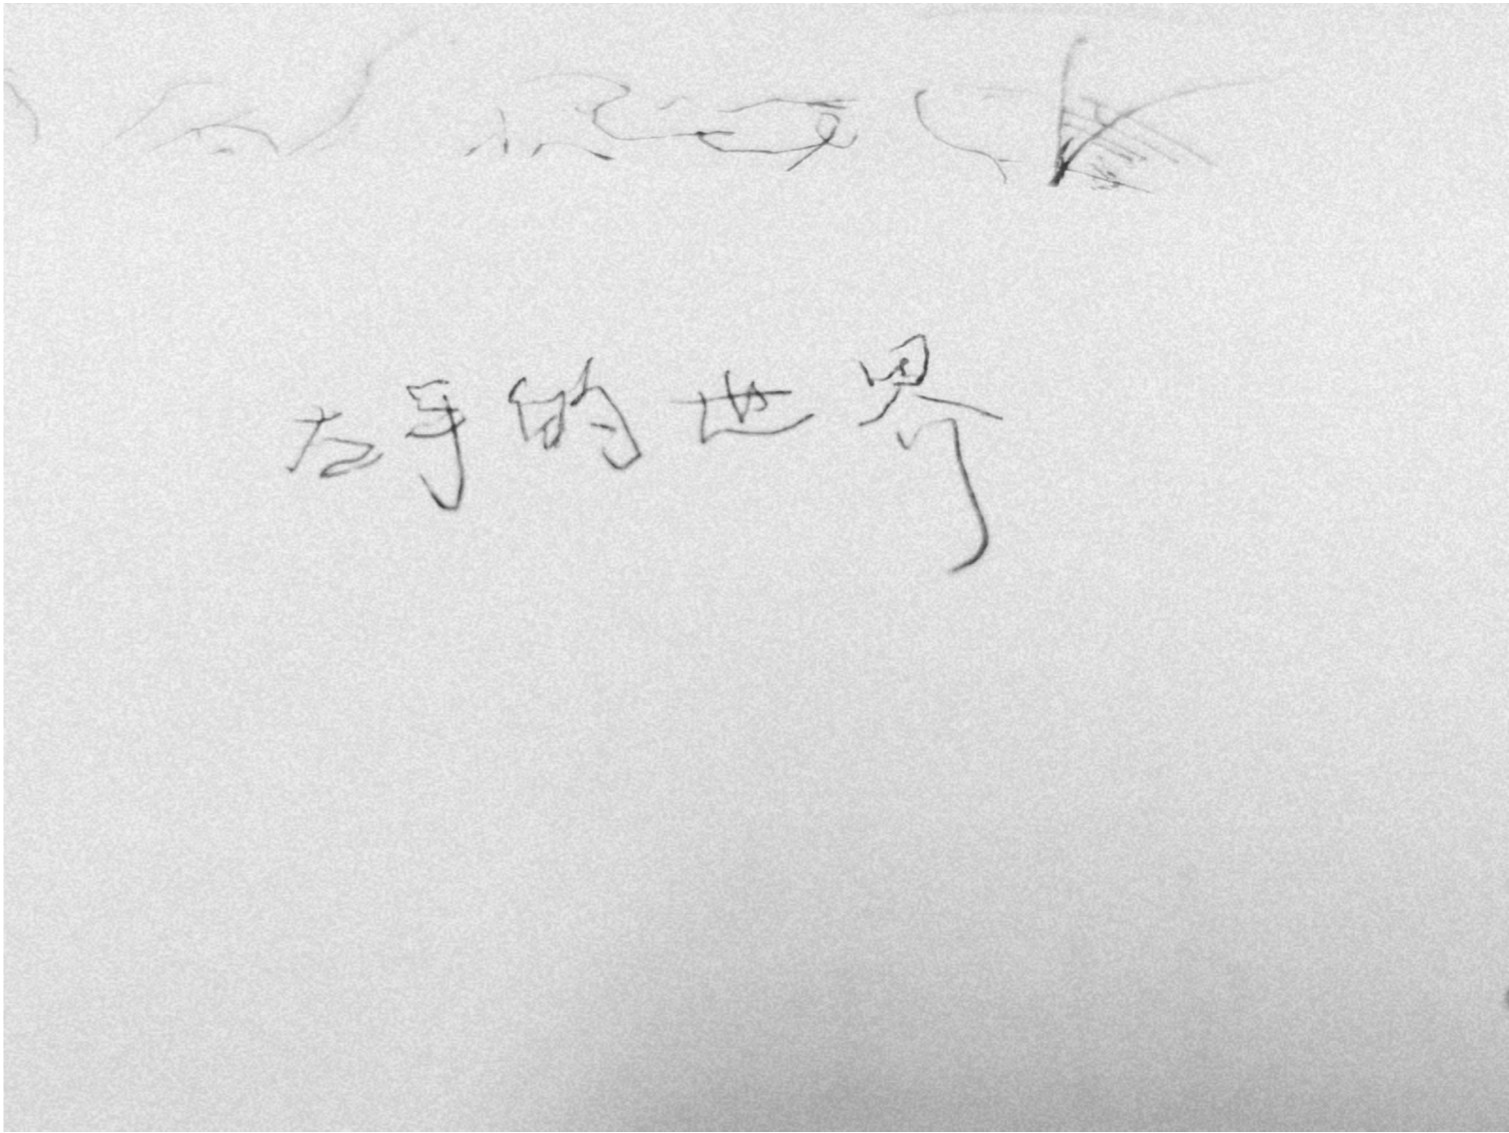 左手的世界